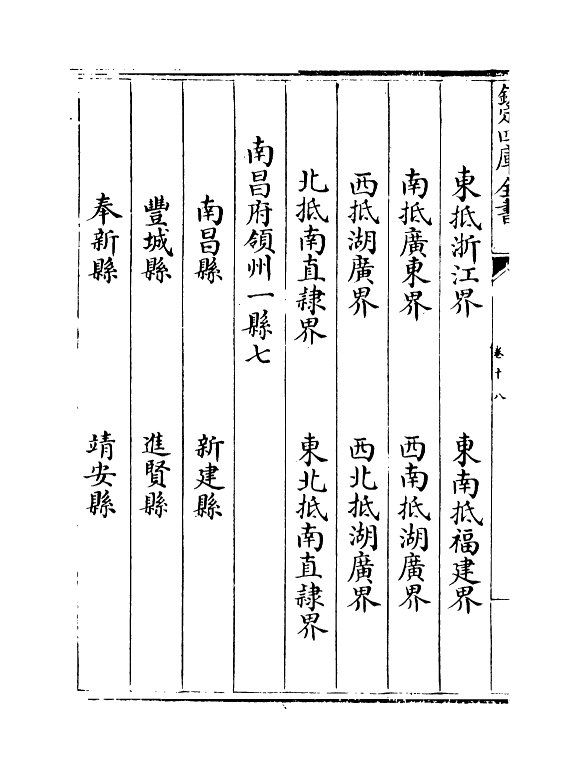 欽定四庫全書
卷十八
東抵浙江界　東南抵福建界
南抵廣東界　西南抵湖廣界
西抵湖廣界　西北抵湖廣界
北抵南直隸界　東北抵南直隸界
南昌府領州一縣七
南昌縣　新建縣
豐城縣　進賢縣
奉新縣　靖安縣